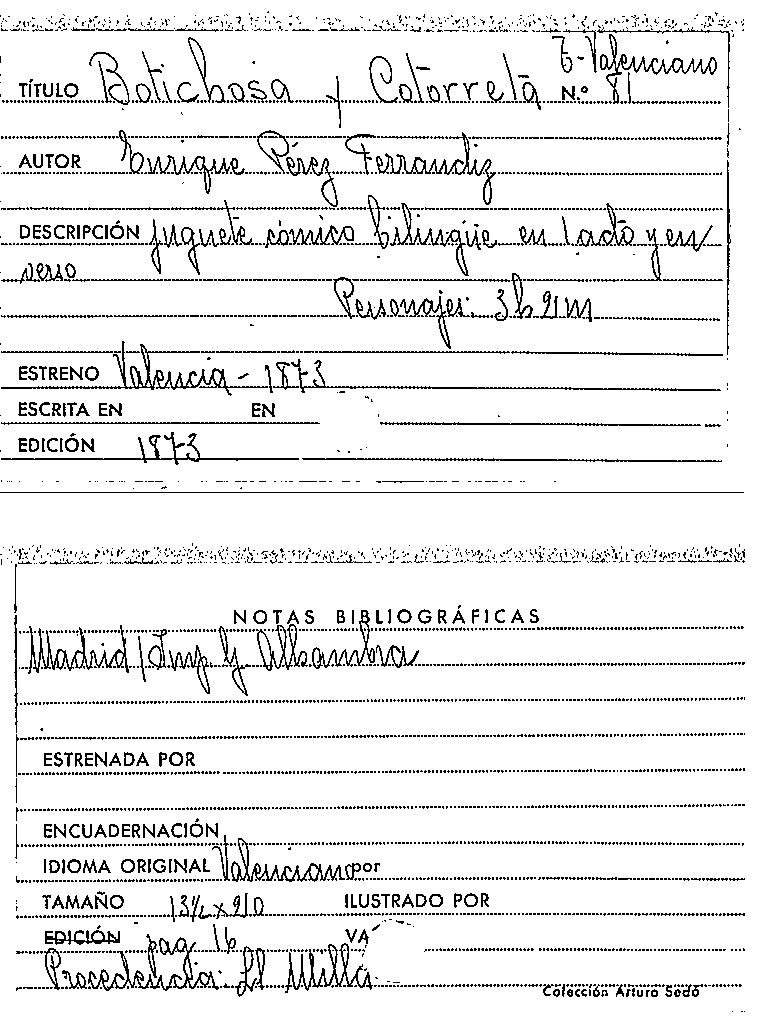 T-Valenciano
TÍTULO Botichosa y Cotorreta N.º 81
AUTOR Enrique Pérez Ferrandiz
DESCRIPCIÓN juguete cómico bilingüe en 1 acto y en
verso
Personajes: 3h 2m
ESTRENO Valencia - 1873
ESCRITA EN EN
EDICIÓN 1873
NOTAS BIBLIOGRÁFICAS
Madrid / Imp y. Alhambra
ESTRENADA POR
ENCUADERNACIÓN
IDIOMA ORIGINAL Valenciano por
TAMAÑO 13½ x 20 ILUSTRADO POR
EDICIÓN pag 16 VA
Procedencia: Ll Millá
Colección Arturo Sedó